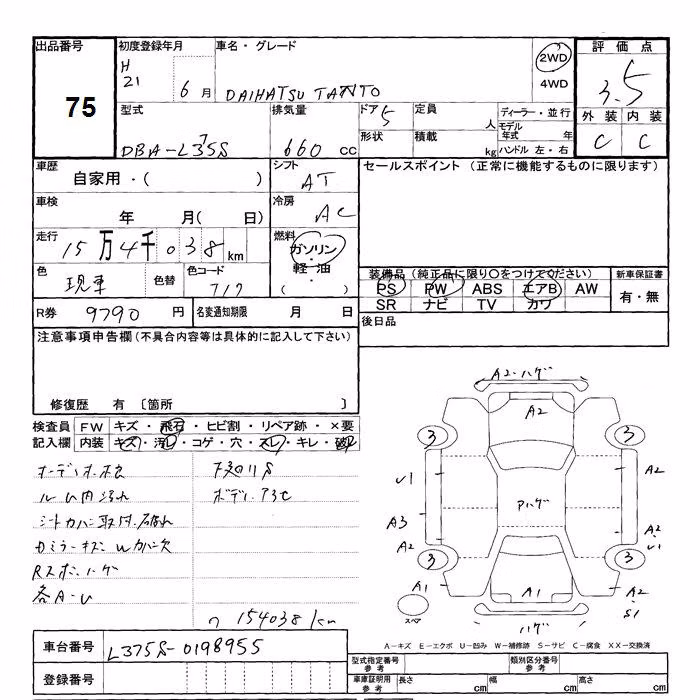 出品番号 初度登録年月 車名・グレード 2WD 評価点
75 H 21 6月 DAIHATSU TANTO 4WD 3.5
型式 排気量 ドア 5 定員 人 ディーラー・並行 外装 内装
DBA-L375S 660 cc 形状 積載 kg モデル年式 年 ハンドル 左・右 C C
車歴 シフト セールスポイント (正常に機能するものに限ります)
自家用・( ) AT
車検 冷房
年 月( 日) AC
走行 燃料
15万4千038km ガソリン・軽油・( )
色 色替 色コード 装備品 (純正品に限り○をつけてください) 新車保証書
現車 717 PS PW ABS エアB AW 有・無
SR ナビ TV カワ
R券 9790 円 名変通知期限 月 日 後日品
注意事項申告欄 (不具合内容等は具体的に記入して下さい)
修復歴 有 〔箇所 〕
検査員 FW キズ・飛石・ヒビ割・リペア跡・×要
記入欄 内装 キズ・汚レ・コゲ・穴・スレ・キレ・破レ
オーディオ欠
ルーム内汚れ ボディ
シートカバー取付・破れ
カ
各A・U
154038km
A2・ハゲ
A2
3 3
U1 A2
A3 Pハゲ
A2 A2・U1
3 3
A1 A1 A2・S1
スペア ハゲ
A-キズ E-エクボ U-凹み W-補修跡 S-サビ C-腐食 XX-交換済
車台番号 L375S-0198955
登録番号
型式指定番号 参考 類別区分番号 参考
車庫証明用 参考 長さ cm 幅 cm 高さ cm